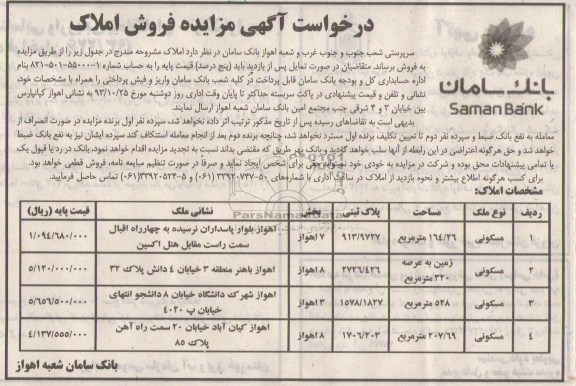 درخواست آگهی مزایده فروش املاک
بانک سامان
Saman Bank
سرپرستی شعب جنوب و جنوب غرب و شعبه اهواز بانک سامان در نظر دارد املاک مشروحه مندرج در جدول زیر را از طریق مزایده
به فروش برساند. متقاضیان در صورت تمایل پس از بازدید باید (پنج درصد) قیمت پایه را به حساب شماره ۱-۵۵۰۰۰-۵۰۱-۸۲۱ بنام
اداره حسابداری کل و بودجه بانک سامان قابل پرداخت در کلیه شعب بانک سامان واریز و فیش پرداختی را همراه با مشخصات خود،
نشانی و تلفن و قیمت پیشنهادی در پاکت سربسته حداکثر تا پایان وقت اداری روز دوشنبه مورخ ۹۳/۱۰/۲۵ به نشانی اهواز کیانپارس
بین خیابان ۳ و ۴ شرقی جنب مجتمع امین بانک سامان شعبه اهواز ارسال نمایند.
بدیهی است به تقاضاهای رسیده پس از تاریخ مذکور ترتیب اثر داده نخواهد شد، سپرده نفر اول برنده مزایده در صورت انصراف از
معامله به نفع بانک ضبط و سپرده نفر دوم تا تعیین تکلیف برنده اول مسترد نخواهد شد، چنانچه برنده دوم بعد از انجام معامله استنکاف کند سپرده ایشان نیز به نفع بانک ضبط
خواهد شد و حق هرگونه اعتراضی در این رابطه از آنها سلب خواهد گردید و بانک بهر طریق که مقتضی بداند نسبت به تجدید مزایده اقدام خواهد نمود، بانک در رد یا قبول یک
یا تمامی پیشنهادات محق بوده و شرکت در مزایده به خودی خود نمی‌تواند حقی برای شخص ایجاد نماید و صرفاً در صورت تنظیم مبایعه نامه، فروش قطعی خواهد بود.
برای کسب هرگونه اطلاع بیشتر و نحوه بازدید از املاک در ساعات اداری با شماره‌های ۵۰-۳۳۹۲۰۷۳۷ (۰۶۱) و ۵-۳۳۹۲۰۵۲۳ (۰۶۱) تماس حاصل فرمایید.
مشخصات املاک:
ردیف نوع ملک مساحت پلاک ثبتی بخش نشانی ملک قیمت پایه (ریال)
۱ مسکونی ۱۶۴/۲۶ مترمربع ۹۱۳/۹۷۲۷ ۷ اهواز اهواز بلوار پاسداران نرسیده به چهارراه اقبال سمت راست مقابل هتل اکسین ۱/۰۹۴/۶۸۰/۰۰۰
۲ مسکونی زمین به عرصه ۳۲۰ مترمربع ۲۷۲۶/۴۲۶ ۸ اهواز اهواز باهنر منطقه ۳ خیابان ۴ دانش پلاک ۳۲ ۵/۱۲۰/۰۰۰/۰۰۰
۳ مسکونی ۵۲۸ مترمربع ۱۵۷۸/۱۸۲۷ ۳ اهواز اهواز شهرک دانشگاه خیابان ۸ دانشجو انتهای خیابان پ ۴۰۲۰ ۵/۶۵۶/۵۰۰/۰۰۰
۴ مسکونی ۲۰۷/۶۹ مترمربع ۱۷۰۶/۲۰۳ ۸ اهواز اهواز کیان آباد خیابان ۲۰ سمت راه آهن پلاک ۸۵ ۴/۱۳۷/۵۵۵/۰۰۰
بانک سامان شعبه اهواز